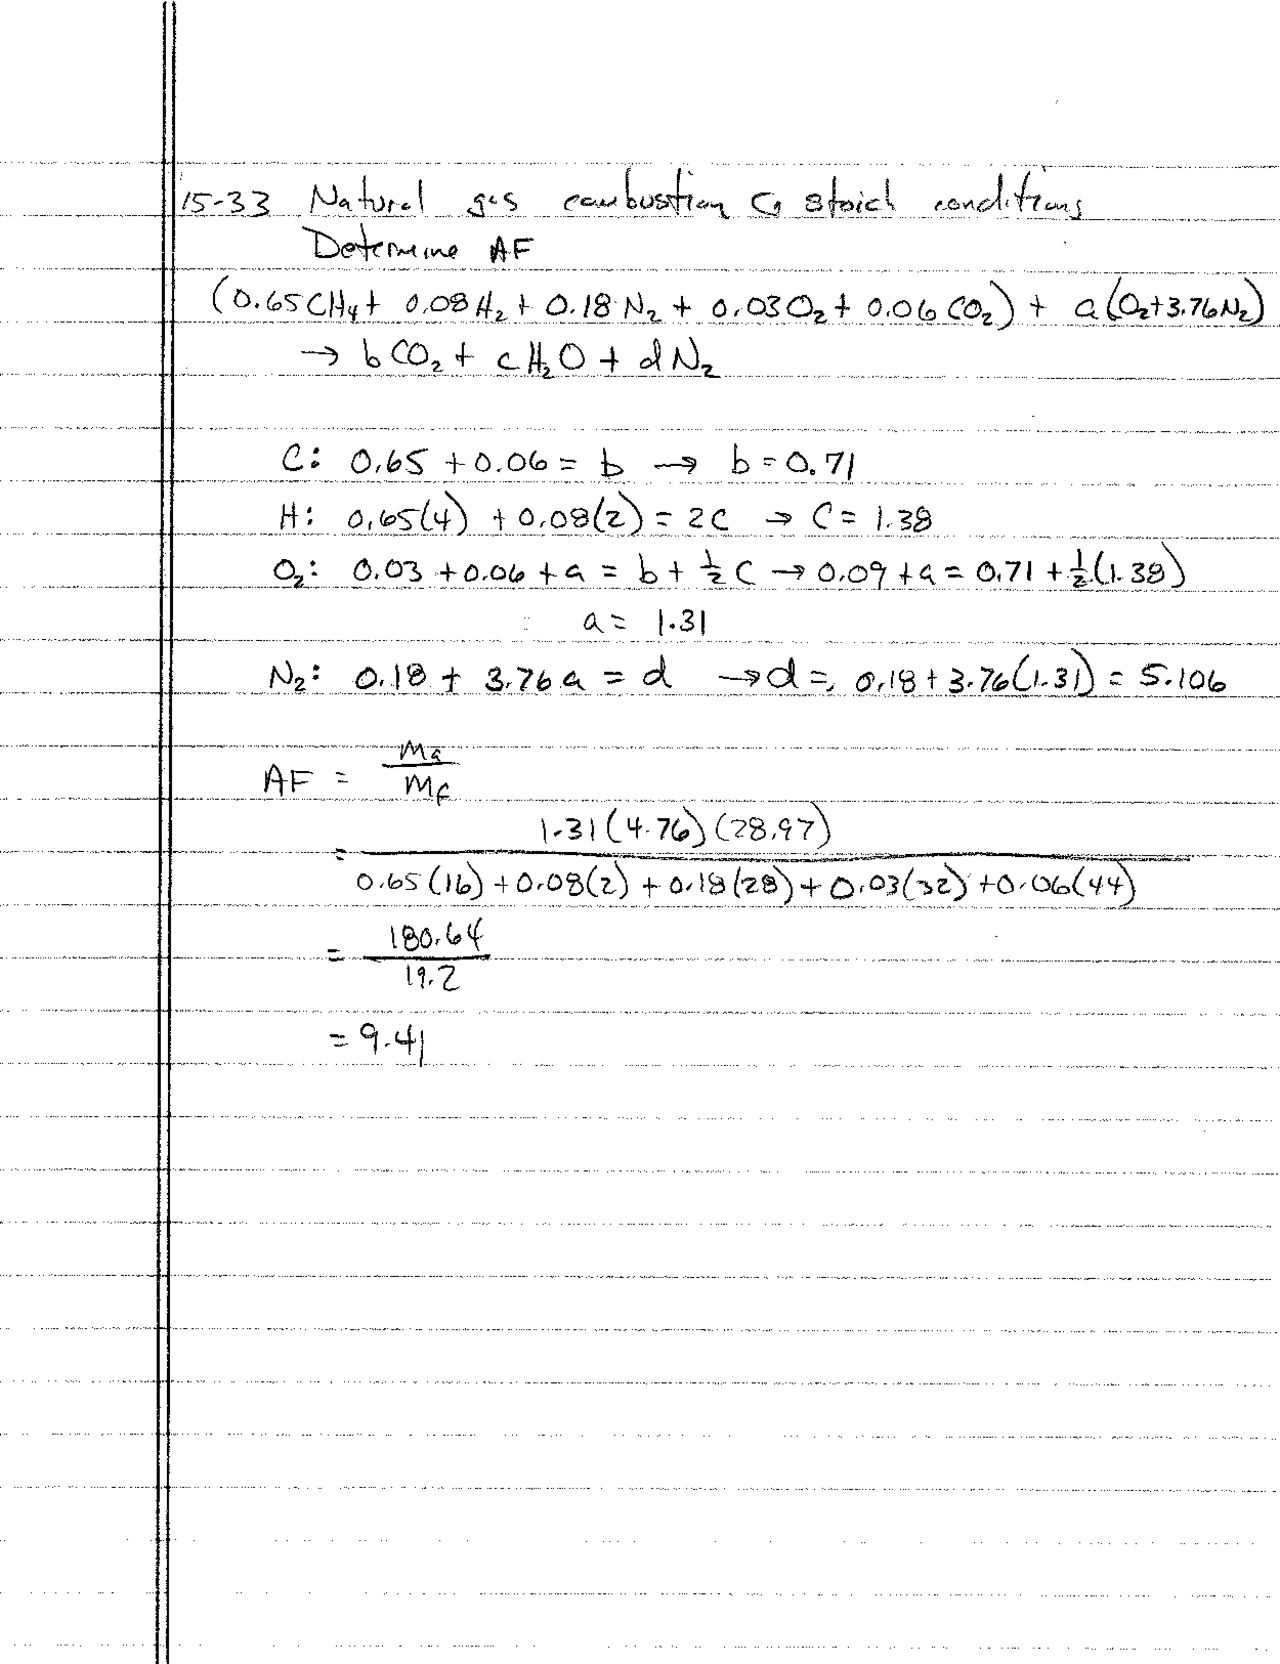 15-33 Natural gas combustion @ stoich conditions
Determine AF
(0.65CH₄ + 0.08H₂ + 0.18N₂ + 0.03O₂ + 0.06CO₂) + a(O₂+3.76N₂)
→ bCO₂ + cH₂O + dN₂
C: 0.65 + 0.06 = b → b = 0.71
H: 0.65(4) + 0.08(2) = 2C → C = 1.38
O₂: 0.03 + 0.06 + a = b + ½C → 0.09 + a = 0.71 + ½(1.38)
a = 1.31
N₂: 0.18 + 3.76a = d → d = 0.18 + 3.76(1.31) = 5.106
AF = ma/mf
= 1.31(4.76)(28.97) / 0.65(16) + 0.08(2) + 0.18(28) + 0.03(32) + 0.06(44)
= 180.64/19.2
= 9.41